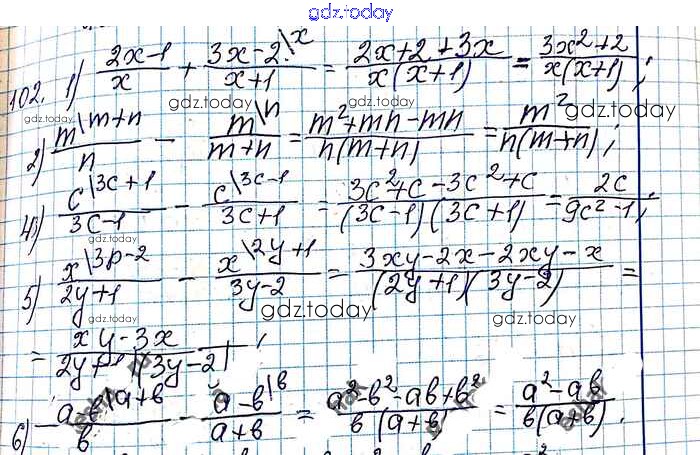 gdz.today
102. 1) (2x-1)/x + (3x-2\x)/(x+1) = (2x+2+3x)/(x(x+1)) = (3x²+2)/(x(x+1));
gdz.today gdz.today gdz.today
2) (m\m+n)/n - (m\n)/(m+n) = (m²+mn-mn)/(n(m+n)) = m²/(n(m+n));
gdz.today
4) (c\3c+1)/(3c-1) - (c\3c-1)/(3c+1) = (3c²+c-3c²+c)/((3c-1)(3c+1)) = 2c/(9c²-1);
gdz.today gdz.today
5) (x\3p-2)/(2y+1) - (x\2y+1)/(3y-2) = (3xy-2x-2xy-x)/((2y+1)(3y-2)) =
gdz.today gdz.today
= (xy-3x)/(2y+1)(3y-2);
6) (a-b\a+b)/b - (a-b\b)/(a+b) = (a²-b²-ab+b²)/(b(a+b)) = (a²-ab)/(b(a+b)).